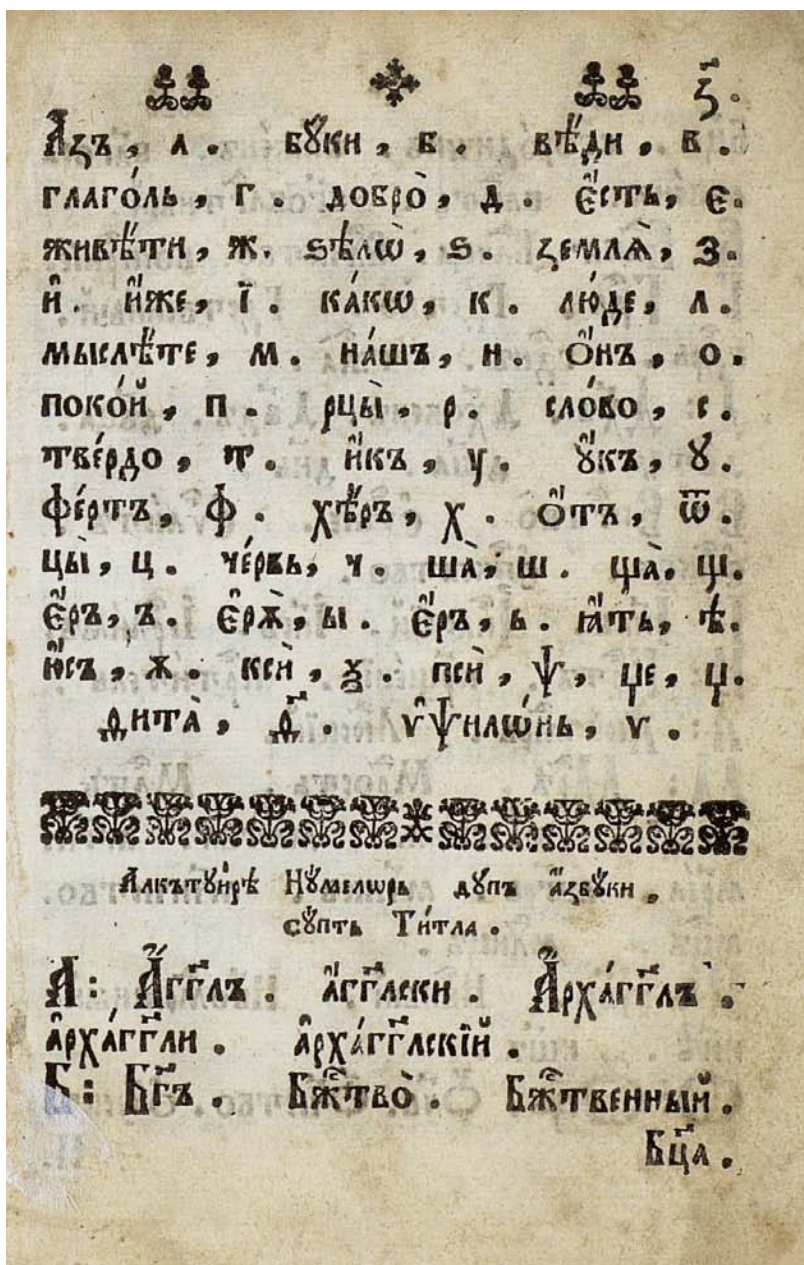 з҃.
А҆́зъ, а. бꙋ́ки, б. вѣ́ди, в.
глаго́ль, г. добро̀, д. є҆́сть, є.
живѣ́ти, ж. ѕѣлѡ̀, ѕ. ꙁемлѧ̀, з.
и҆̂. и҆́же, ї. ка́кѡ, к. лю́де, л.
мыслѣ́те, м. на́шъ, н. Ѻ҆́нъ, о.
поко́й, п. рцы̀, р. сло́во, с.
тве́рдо, т. и҆́къ, у. ꙋ҆́къ, ꙋ.
фе́ртъ, ф. хѣ́ръ, х. ѻ҆́тъ, ѿ.
цы̀, ц. че́рвь, ч. ша̀, ш. ща̀, щ.
є҆́ръ, ъ. є҆рѫ̀, ы. є҆́рь, ь. ꙗ҆́ть, ѣ.
ю҆́съ, ѫ. ксѝ, ѯ. псѝ, ѱ, џе, џ.
дита̀, д҃. ѵ҆ѱилѡ́нь, ѵ.
Алкътꙋи́рѣ Нꙋ́мелѡрь дꙋпъ а҆́збꙋки.
сꙋ́пть Ти́тла.
А: А҆́гг҃лъ. а҆́гг҃лски. А҆рха́гг҃лъ.
а҆рха́гг҃ли. а҆рха́гг҃лскїй.
Б: Бг҃ъ. Бжⷭ҇тво̀. Бжⷭ҇твенный.
Бц҃а.